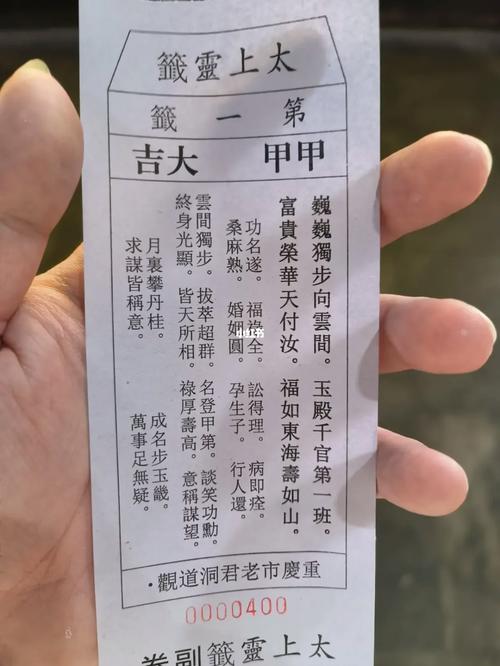 太上靈籤
第一籤
甲甲 大吉
巍巍獨步向雲間。玉殿千官第一班。
富貴榮華天付汝。福如東海壽如山。
功名遂。福祿全。訟得理。病即痊。
桑麻熟。婚姻圓。孕生子。行人還。
雲間獨步。拔萃超群。名登甲第。談笑功勳。
終身光顯。皆天所相。祿厚壽高。意稱謀望。
月裏攀丹桂。成名步玉畿。
求謀皆稱意。萬事足無疑。
重慶市老君洞道觀·
0000400
太上靈籤副